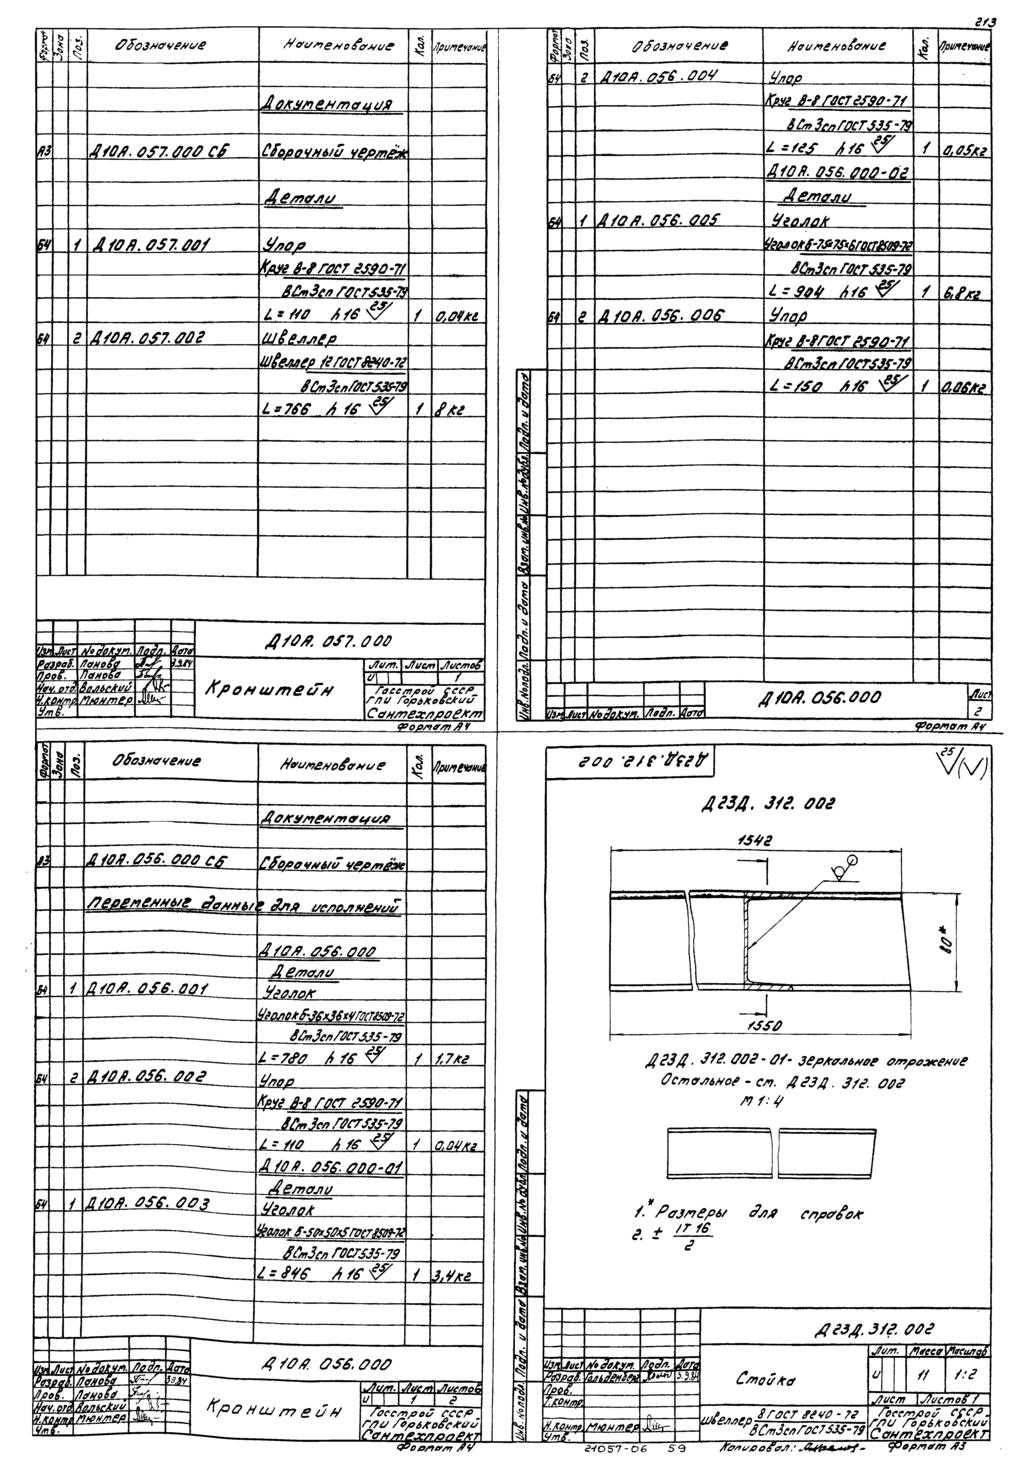 213
Формат
Зона
Поз.
Обозначение
Наименование
Кол.
Примечание
Документация
А3 Д10А.057.000 СБ Сборочный чертёж
Детали
Б4 1 Д10А.057.001 Упор
Круг В-8 ГОСТ 2590-71
ВСт3сп ГОСТ 535-79
L=110 h16 25 1 0,04кг
Б4 2 Д10А.057.002 Швеллер
Швеллер 12 ГОСТ 8240-72
ВСт3сп ГОСТ 535-79
L=766 h16 25 1 8кг
Д10А.057.000
Изм Лист № докум. Подп. Дата
Разраб. Панова 3.9.84
Пров. Панова
Нач. отд Вольский
Н.контр Мюнтер
Утв.
Кронштейн
Лит. Лист Листов
И 1
Госстрой СССР
ГПИ Горьковский
Сантехпроект
Формат А4
Формат
Зона
Поз.
Обозначение
Наименование
Кол.
Примечание
Б4 2 Д10А.056.004 Упор
Круг В-8 ГОСТ 2590-71
ВСт3сп ГОСТ 535-79
L=125 h16 25 1 0,05кг
Д10А.056.000-02
Детали
Б4 1 Д10А.056.005 Уголок
Уголок Б-75×75×6 ГОСТ 8509-72
ВСт3сп ГОСТ 535-79
L=904 h16 25 1 6,8кг
Б4 2 Д10А.056.006 Упор
Круг В-8 ГОСТ 2590-71
ВСт3сп ГОСТ 535-79
L=150 h16 25 1 0,06кг
Инв.№ подл. Подп. и дата Взам. инв.№ Инв.№ дубл. Подп. и дата
Д10А.056.000
Лист
2
Изм Лист № докум. Подп. Дата
Формат А4
Формат
Зона
Поз.
Обозначение
Наименование
Кол.
Примечание
Документация
А3 Д10А.056.000 СБ Сборочный чертёж
Переменные данные для исполнений
Д10А.056.000
Детали
Б4 1 Д10А.056.001 Уголок
Уголок Б-36×36×4 ГОСТ 8509-72
ВСт3сп ГОСТ 535-79
L=780 h16 25 1 1,7кг
Б4 2 Д10А.056.002 Упор
Круг В-8 ГОСТ 2590-71
ВСт3сп ГОСТ 535-79
L=110 h16 25 1 0,04кг
Д10А.056.000-01
Детали
Б4 1 Д10А.056.003 Уголок
Уголок Б-50×50×5 ГОСТ 8509-72
ВСт3сп ГОСТ 535-79
L=846 h16 25 1 3,4кг
Д10А.056.000
Изм Лист № докум. Подп. Дата
Разраб. Панова 3.9.84
Пров. Панова
Нач. отд Вольский
Н.контр Мюнтер
Утв.
Кронштейн
Лит. Лист Листов
И 1 2
Госстрой СССР
ГПИ Горьковский
Сантехпроект
Формат А4
Д23Д.312.002
25
Д23Д.312.002
1542
80*
1550
Д23Д.312.002-01- зеркальное отражение
Остальное - см. Д23Д.312.002
М 1:4
1.* Размеры для справок
2. ± IT16/2
Инв.№ подл. Подп. и дата Взам. инв.№ Инв.№ дубл. Подп. и дата
Д23Д.312.002
Изм Лист № докум. Подп. Дата
Разраб. Гольденберг 3.9.84
Пров.
Т.контр.
Н.контр. Мюнтер
Утв.
Стойка
Лит. Масса Масштаб
И 11 1:2
Лист Листов 1
Швеллер 8 ГОСТ 8240-72
ВСт3сп ГОСТ 535-79
Госстрой СССР
ГПИ Горьковский
Сантехпроект
21057-06 59
Копировал:
Формат А3